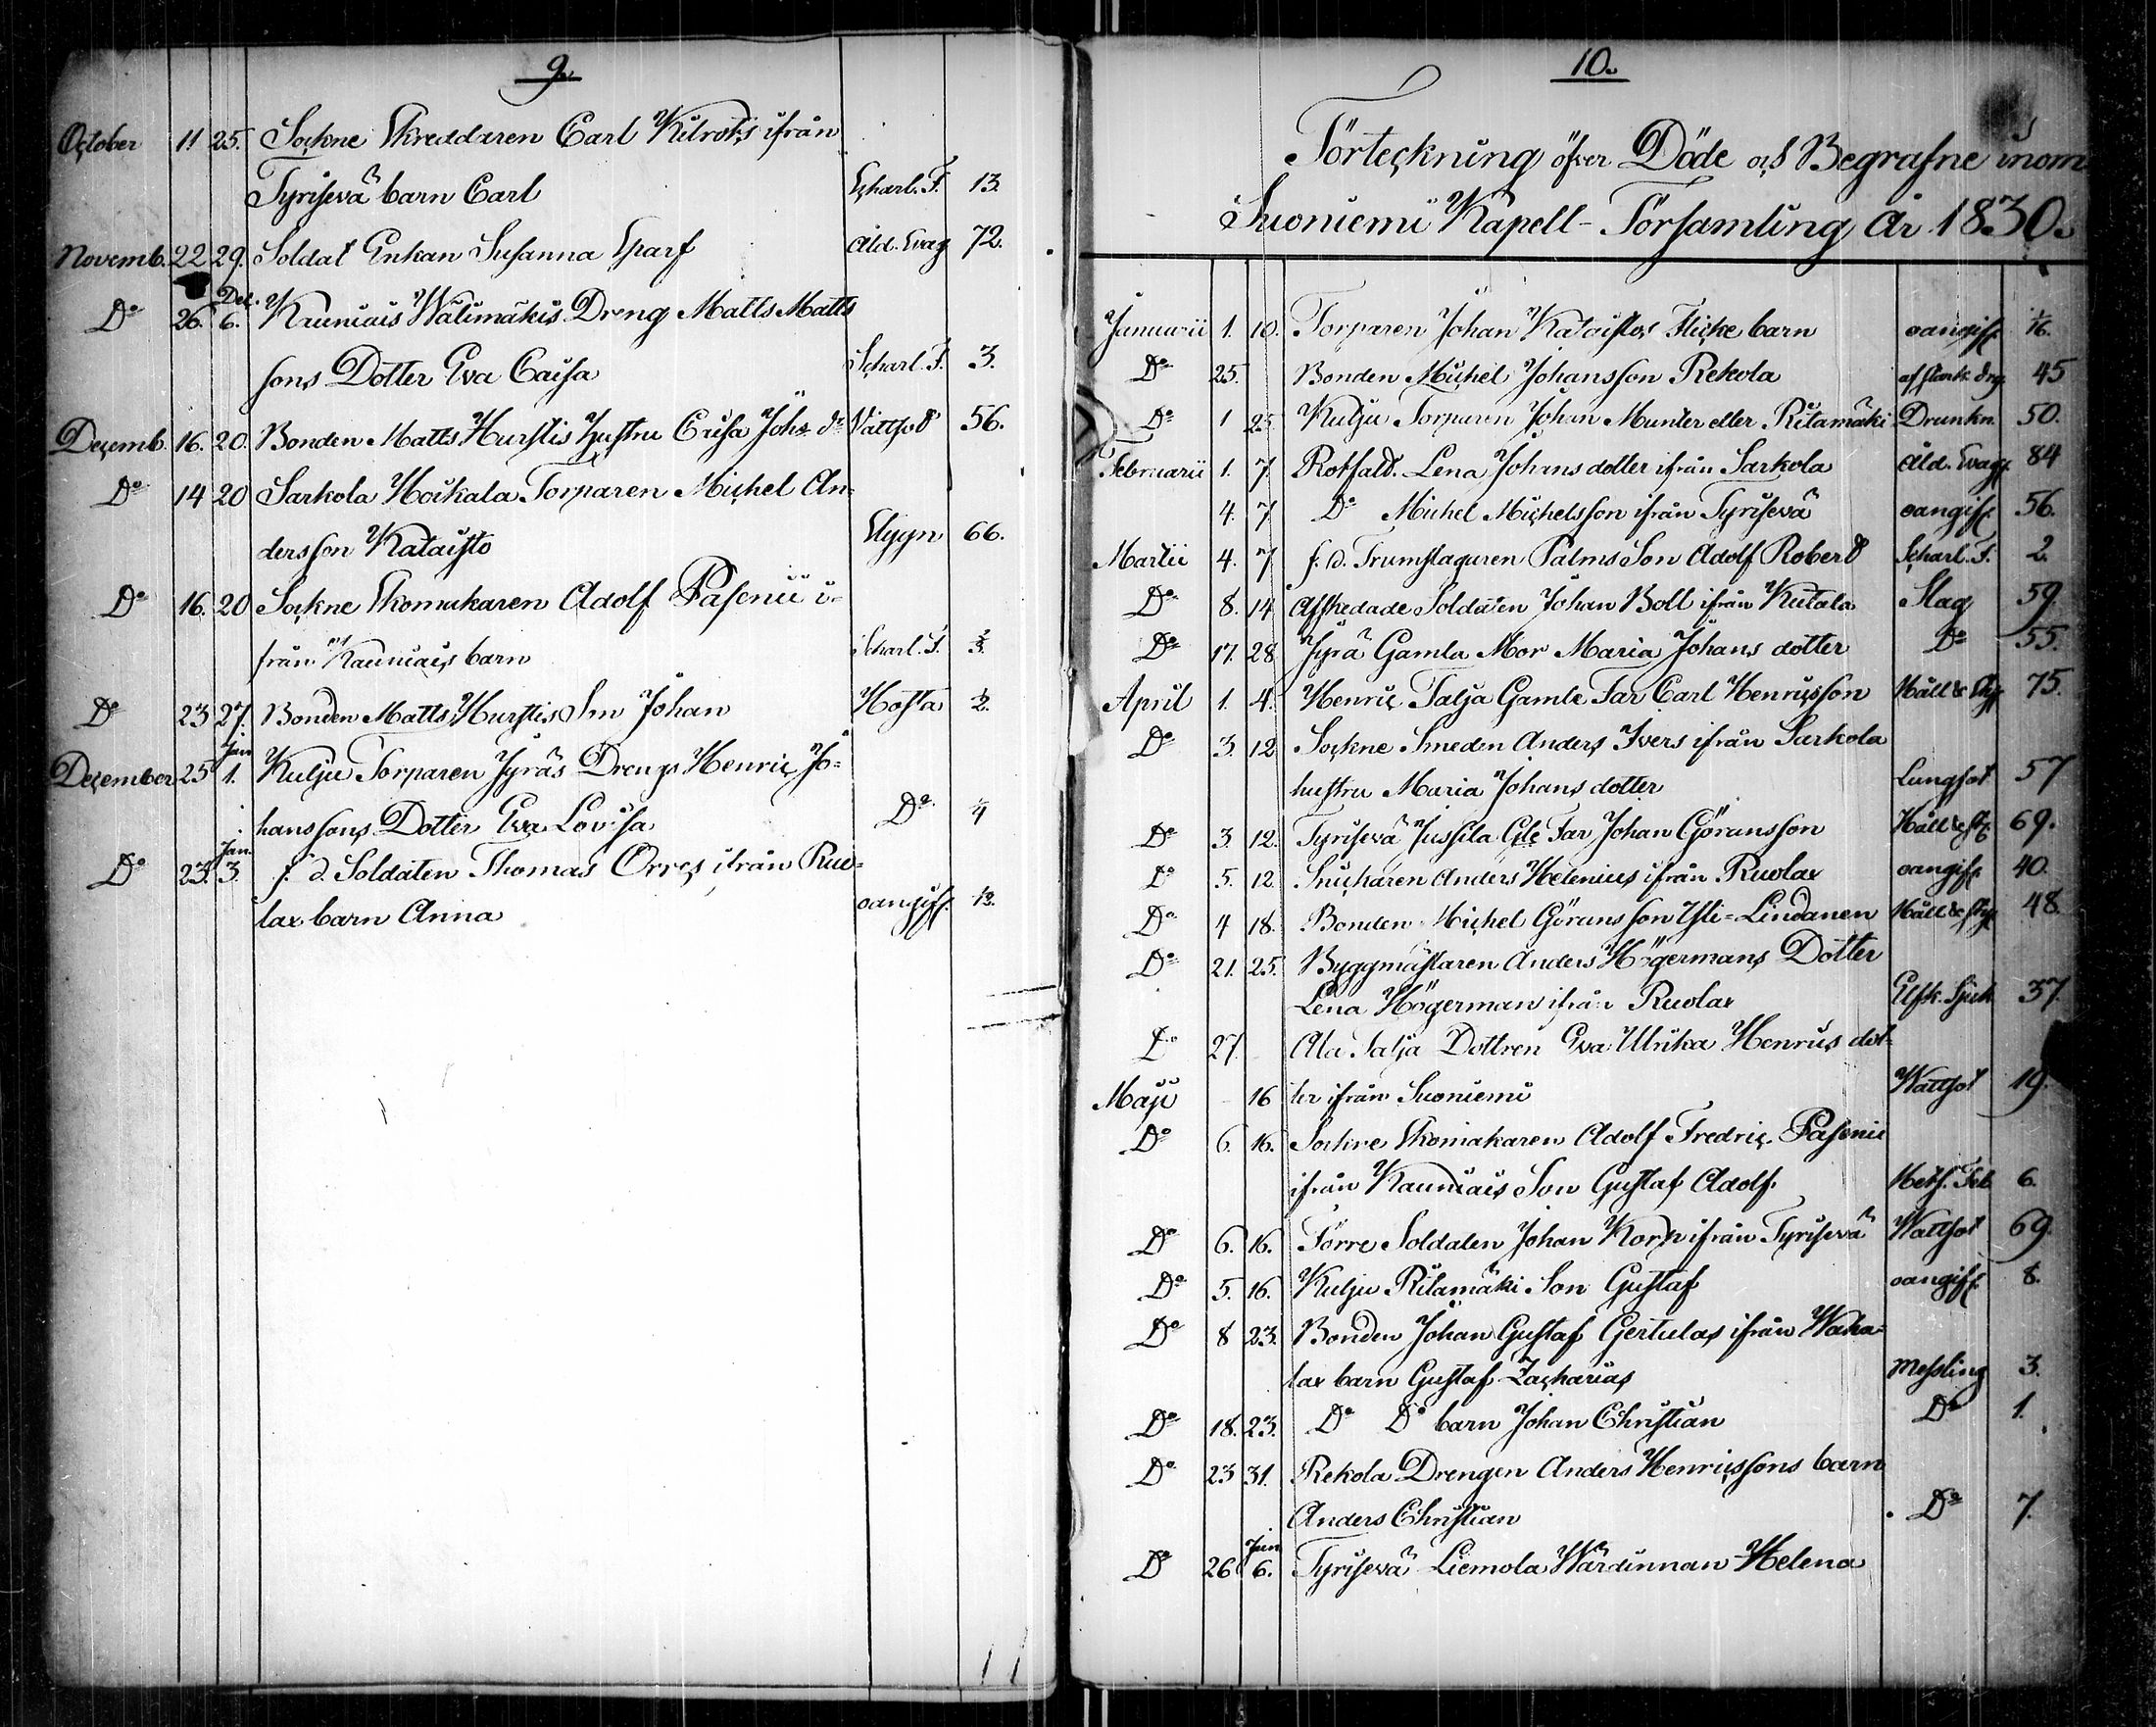 9.
October 11 25. Sockne Skreddaren Carl Kilroths ifrån
Tyrisevä barn Carl Scharl. F. 13.
Novemb. 22 29. Soldat Enkan Susanna Sparf Ald. Svag 72.
Dec.
Do 26. 6. Kauniais Wälimäkis Dreng Matts Matts
sons Dotter Eva Caisa Scharl. F. 3.
Decemb. 16. 20. Bonden Matts Hurstis hustru Caisa Johs dr Vattsot 56.
Do 14 20 Sarkola Hoikala Torparen Michel An-
dersson Kataisto Stygn 66.
Do 16. 20 Sockne Skomakaren Adolf Pasenii i-
från Kauniais barn Scharl. F.
Do 23 27. Bonden Matts Hurstis Son Johan Hosta ½.
Jan
December 25 1. Kulju Torparen Jyräs Drengs Henric Jo-
hanssons Dotter Eva Lovisa Do
Jan.
Do 23. 3. f. d. Soldaten Thomas Orres ifrån Ruo-
lax barn Anna oangiff.
10.
Förteckning öfver Döde och Begrafne inom
Suoniemi Kapell-Församling år 1830.
Januarii 1. 10. Torparen Johan Kataistos Flicke barn oangiff.
Do 25. Bonden Michel Johansson Rekola af stark drg. 45
Do 1 25 Kulju Torparen Johan Munter eller Ritamäki Drunkn. 50.
Februarii 1. 7. Rotfatd. Lena Johans dotter ifrån Sarkola Åld. Svag. 84
4. 7 Do Michel Michelsson ifrån Tyrisevä oangiff. 56.
Martii 4. 7 f. d. Trumslagaren Palms Son Adolf Robert Scharl. F. 2.
Do 8. 14 Afskedade Soldaten Johan Boll ifrån Kutala Slag 59.
Do 17. 28 Jyrä Gamla Mor Maria Johans dotter Do 55.
April 1. 4. Henric Talja Gamle Far Carl Henricsson Håll & Styg 75.
Do 3. 12 Sockne Smeden Anders Ivers ifrån Sarkola
hustru Maria Johans dotter Lungsot 57
Do 3. 12. Tyrisevä Jussila Gle Far Johan Göransson Håll & stg. 69.
Do 5. 12. Snickaren Anders Helenius ifrån Ruolax oangiff. 40.
Do 4 18. Bonden Michel Göransson Yli-Lindanen Håll & styg 48.
Do 21. 25. Byggmästaren Anders Högermans Dotter
Lena Högerman ifrån Ruolax 37.
Do 27. Ala Talja Dottren Eva Ulrika Henrics dot-
Maji 16 ter ifrån Suoniemi Wattsot 19.
Do 6. 16. Sockne Skomakaren Adolf Fredric Pasenii
ifrån Kauniais Son Gustaf Adolf. Hets. Feb. 6.
Do 6. 16. Förre Soldaten Johan Korp ifrån Tyrisevä Wattsot 69.
Do 5. 16. Kulju Ritamäki Son Gustaf oangiff. 8.
Do 8 23. Bonden Johan Gustaf Gertulas ifrån Waha-
lax barn Gustaf Zacharias Messling 3.
Do 18. 23. Do Do barn Johan Christian Do 1.
Do 23 31. Rekola Drengen Anders Henricssons barn
Anders Christian Do 7.
Jun
Do 26 6. Tyrisevä Liemola Wärdinnan Helena